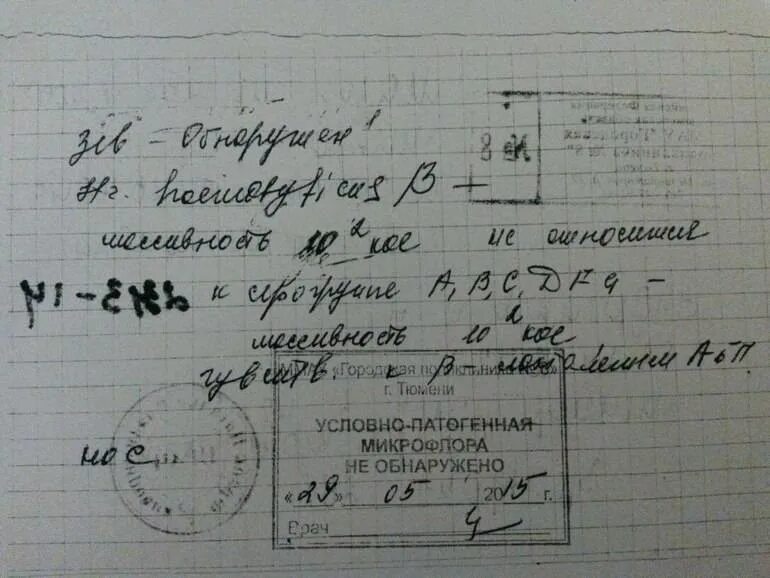 Зев – Обнаружен
Str. haemolyticus β –
массивность 10² кое не относится
к серогруппе A, B, C, D F G –
массивность 10² кое
чувств. к β лактамным АБП
«Городская поликлиника
г. Тюмени
УСЛОВНО-ПАТОГЕННАЯ
МИКРОФЛОРА
НЕ ОБНАРУЖЕНО
нос
«29» 05 2015 г.
Врач